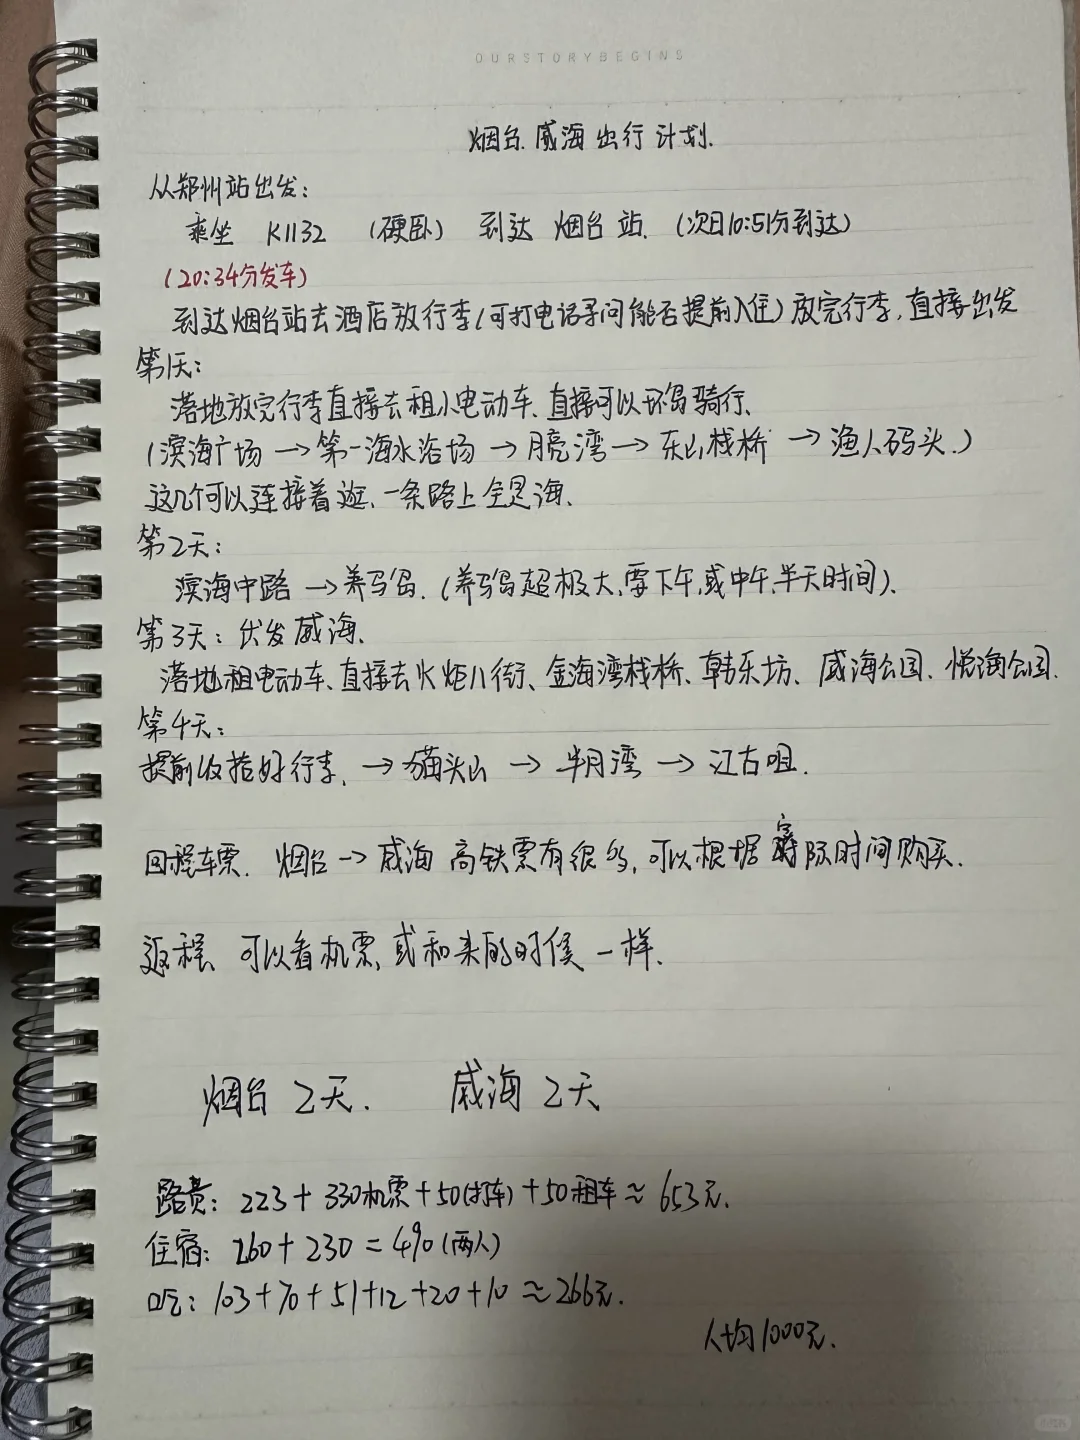 OURSTORYBEGINS
烟台.威海出行计划.
从郑州站出发:
乘坐 K1132 (硬卧) 到达 烟台站. (次日10:51分到达)
(20:34分发车)
到达烟台站去酒店放行李(可打电话寻问能否提前入住)放完行李,直接出发
第1天:
落地放完行李直接去租小电动车、直接可以环岛骑行、
(滨海广场→第一海水浴场→月亮湾→东山栈桥→渔人码头.)
这几个可以连接着逛、一条路上全是海.
第2天:
滨海中路→养马岛.(养马岛超极大,需下午,或中午,半天时间).
第3天:出发威海、
落地租电动车、直接去火炬八街、金海湾栈桥、韩乐坊、威海公园、悦海公园.
第4天:
提前收拾好行李、→猫头山→半月湾→江古咀.
回程车票、烟台→威海 高铁票有很多,可以根据实际时间购买.
返程、可以看机票,或和来的时候一样.
烟台2天. 威海2天
路费:223+330机票+50(打车)+50租车≈653元.
住宿:260+230=490(两人)
吃:103+70+51+12+20+10≈266元.
人均1000元.